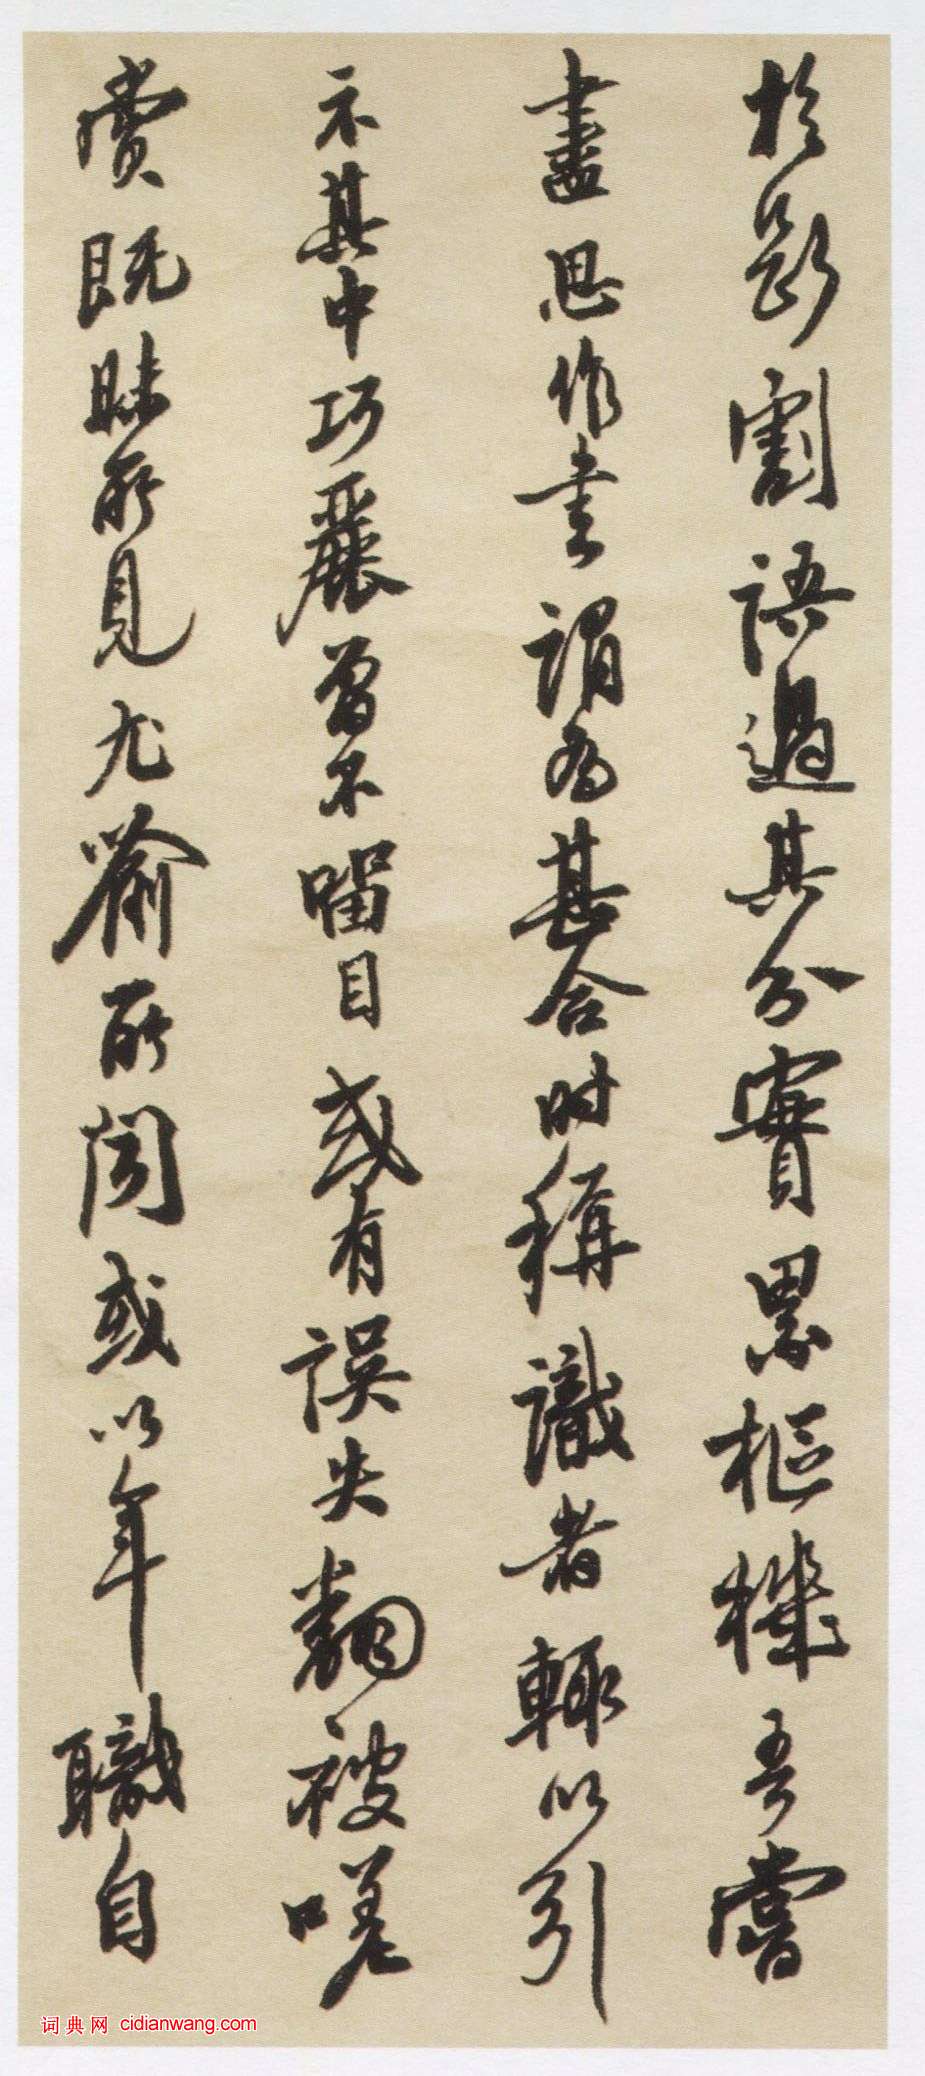 於斷割語過其分實累樞機吾嘗
盡思作書謂為甚合時稱識者輒以引
示其中巧麗曾不留目或有誤失翻被嗟
賞既昧所見尤喻所聞或以年職自
词典网 cidianwang.com